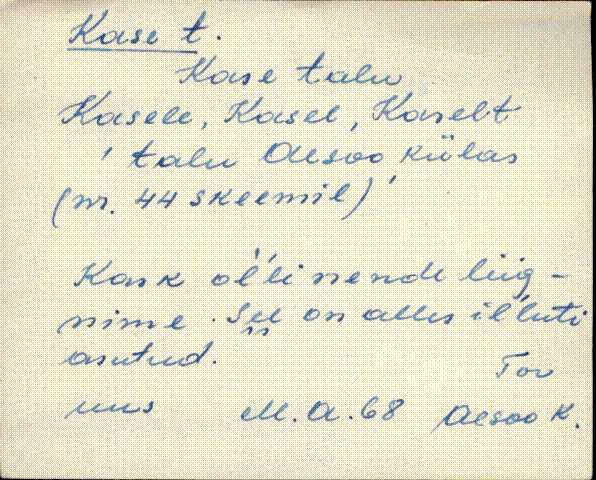 Kase t.
Kase talu
Kasele, Kasel, Kaselt
talu Aesoo külas
(nr. 44 skeemil)
Kask ol'li nende liig-
nime. See on alles il'luti
asutud.
Tor
uus M.A.68 Aesoo k.